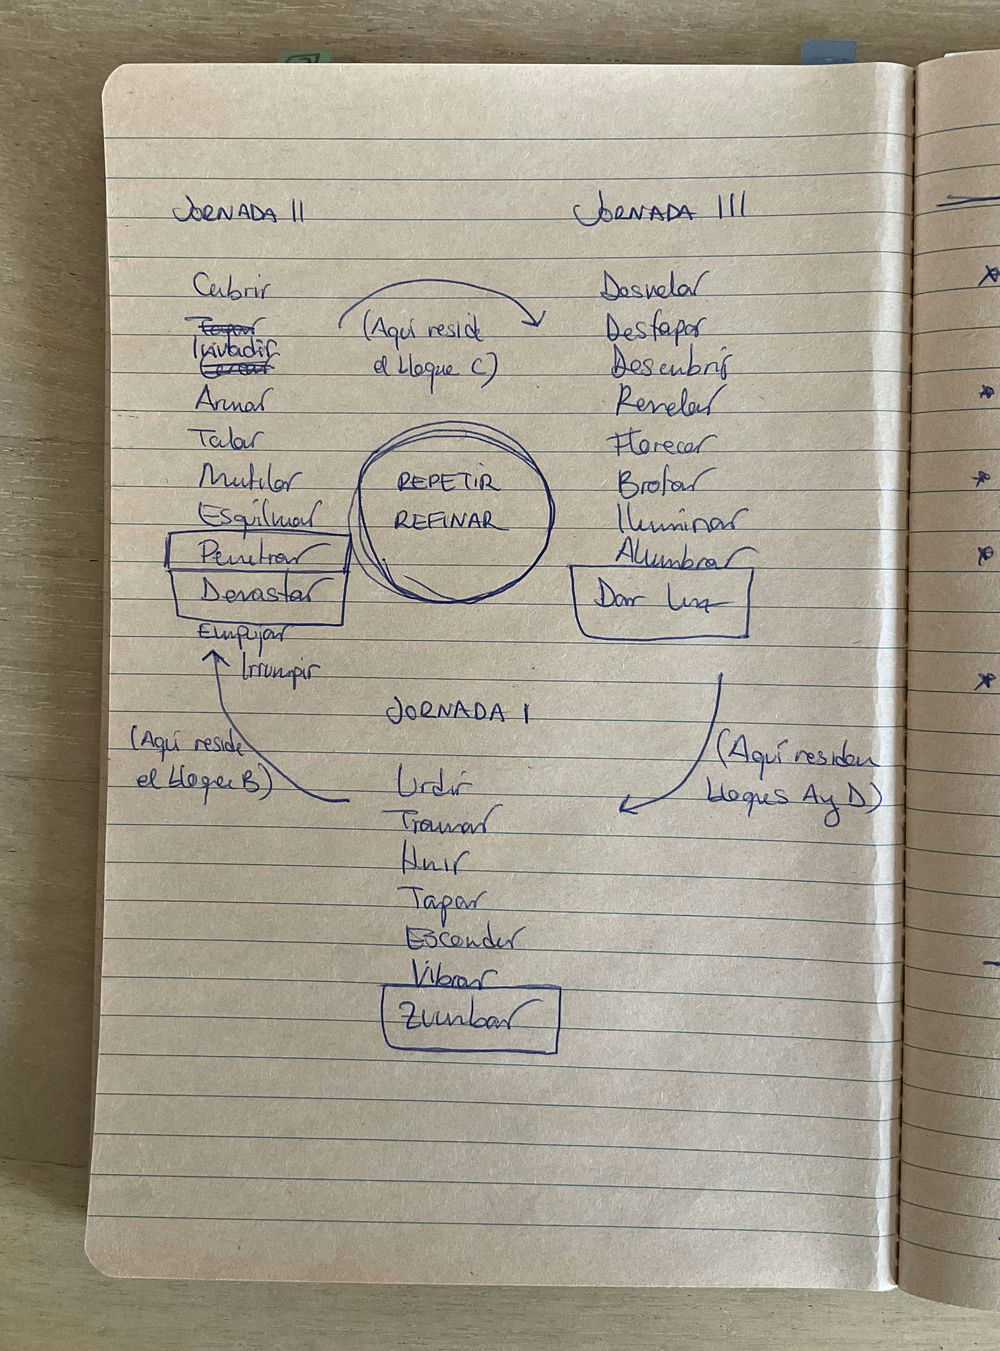 JORNADA II
Cubrir
Tapar
Invadir
Cercar
Armar
Talar
Mutilar
Esquilmar
Penetrar
Devastar
Empujar
Irrumpir
(Aquí reside
el bloque C)
REPETIR
REFINAR
JORNADA III
Desvelar
Destapar
Descubrir
Revelar
Florecer
Brotar
Iluminar
Alumbrar
Dar luz
(Aquí reside
el bloque B)
JORNADA I
Urdir
Tramar
Huir
Tapar
Esconder
Vibrar
Zumbar
(Aquí residen
bloques A y D)